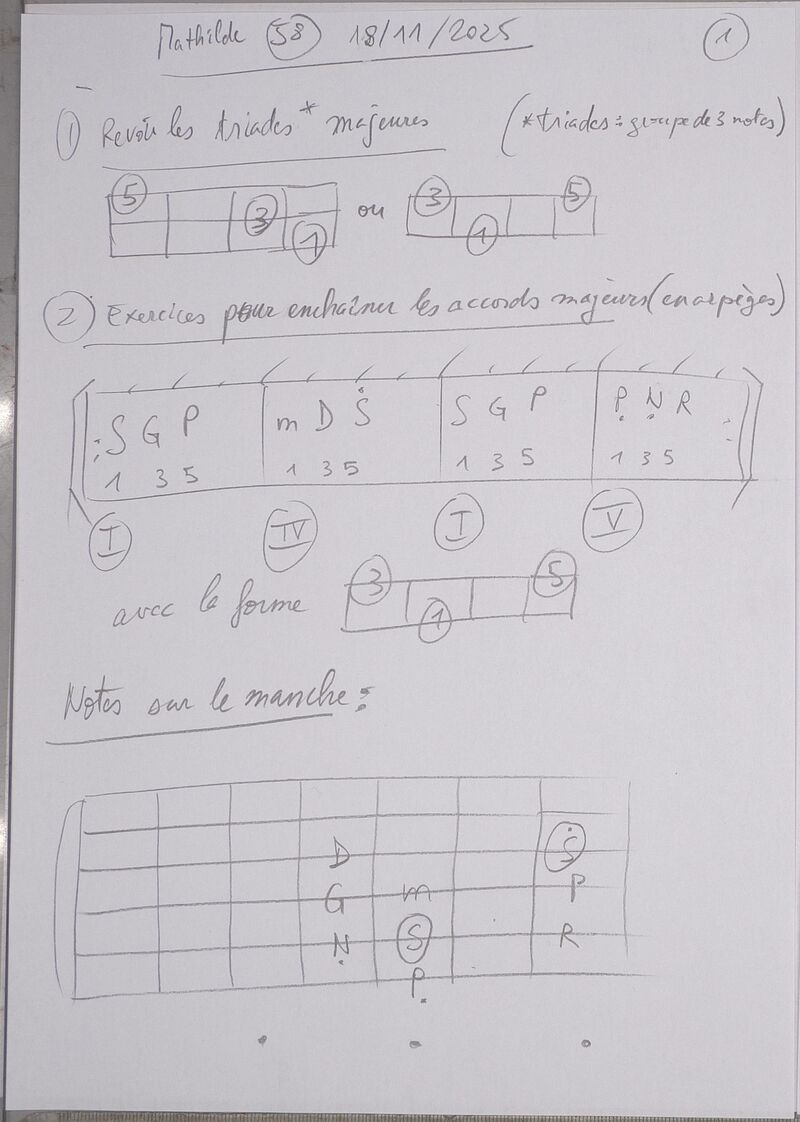 Mathilde 58 18/11/2025 1
1 Revoir les triades* majeures (*triades = groupe de 3 notes)
5 3 1 ou 3 1 5
2 Exercices pour enchaîner les accords majeurs (en arpèges)
: S G P m D Ṡ S G P Ṗ Ṇ R :
1 3 5 1 3 5 1 3 5 1 3 5
I IV I V
avec la forme 3 1 5
Notes sur le manche :
D Ṡ
G m P
Ṇ S R
P.